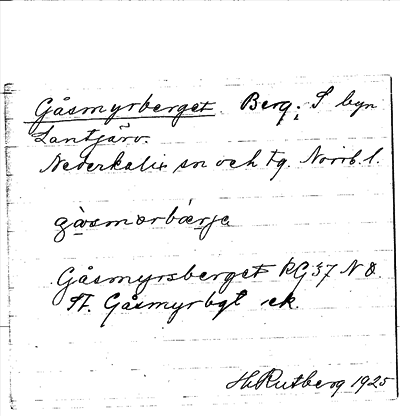 Gåsmyrberget. Berg i S byn
Lantjärv.
Nederkalix sn och tg. Norrb. l.
gåsmorbærje
Gåsmyrsberget RG 37 NO.
St. Gåsmyrbgt ek.
H. Rutberg 1925